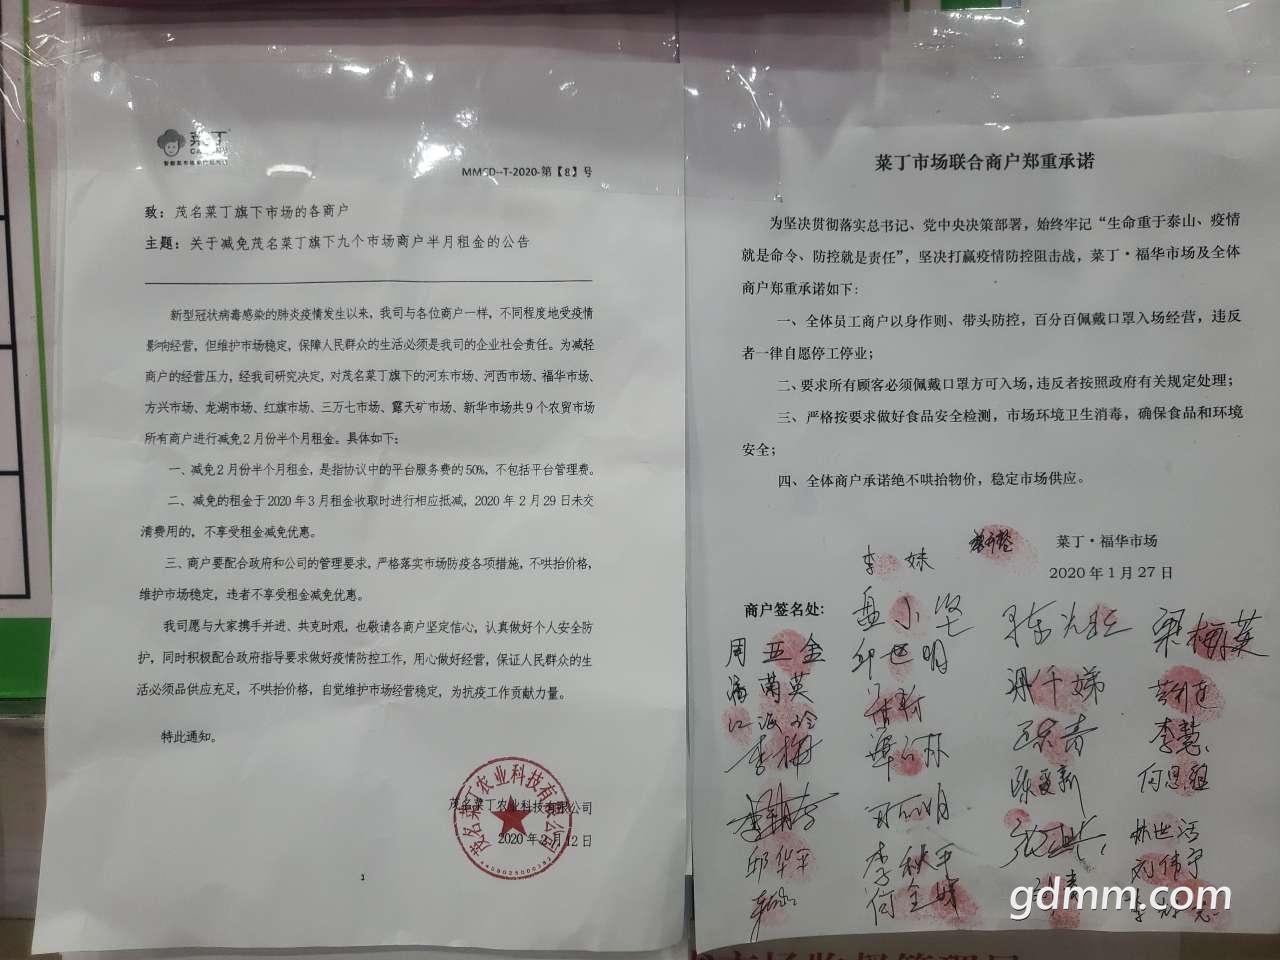 菜丁
MMCD--T-2020-第【8】号
致：茂名菜丁旗下市场的各商户
主题：关于减免茂名菜丁旗下九个市场商户半月租金的公告
新型冠状病毒感染的肺炎疫情发生以来，我司与各位商户一样，不同程度地受疫情
影响经营，但维护市场稳定，保障人民群众的生活必须是我司的企业社会责任。为减轻
商户的经营压力，经我司研究决定，对茂名菜丁旗下的河东市场、河西市场、福华市场、
方兴市场、龙湖市场、红旗市场、三万七市场、露天矿市场、新华市场共9个农贸市场
所有商户进行减免2月份半个月租金。具体如下：
一、减免2月份半个月租金，是指协议中的平台服务费的50%，不包括平台管理费。
二、减免的租金于2020年3月租金收取时进行相应抵减，2020年2月29日未交
清费用的，不享受租金减免优惠。
三、商户要配合政府和公司的管理要求，严格落实市场防疫各项措施，不哄抬价格，
维护市场稳定，违者不享受租金减免优惠。
我司愿与大家携手并进、共克时艰，也敬请各商户坚定信心，认真做好个人安全防
护，同时积极配合政府指导要求做好疫情防控工作，用心做好经营，保证人民群众的生
活必须品供应充足，不哄抬价格，自觉维护市场经营稳定，为抗疫工作贡献力量。
特此通知。
茂名菜丁农业科技有限公司
2020年2月12日
茂名菜丁农业科技有限公司
1
菜丁市场联合商户郑重承诺
为坚决贯彻落实总书记、党中央决策部署，始终牢记“生命重于泰山、疫情
就是命令、防控就是责任”，坚决打赢疫情防控阻击战，菜丁·福华市场及全体
商户郑重承诺如下：
一、全体员工商户以身作则、带头防控，百分百佩戴口罩入场经营，违反
者一律自愿停工停业；
二、要求所有顾客必须佩戴口罩方可入场，违反者按照政府有关规定处理；
三、严格按要求做好食品安全检测，市场环境卫生消毒，确保食品和环境
安全；
四、全体商户承诺绝不哄抬物价，稳定市场供应。
菜丁·福华市场
2020年1月27日
李妹
商户签名处：
周五金 邱世明 梁梅英
潘菊英
李梅 李慧
邱华平 李秋平
何全妹
gdmm.com